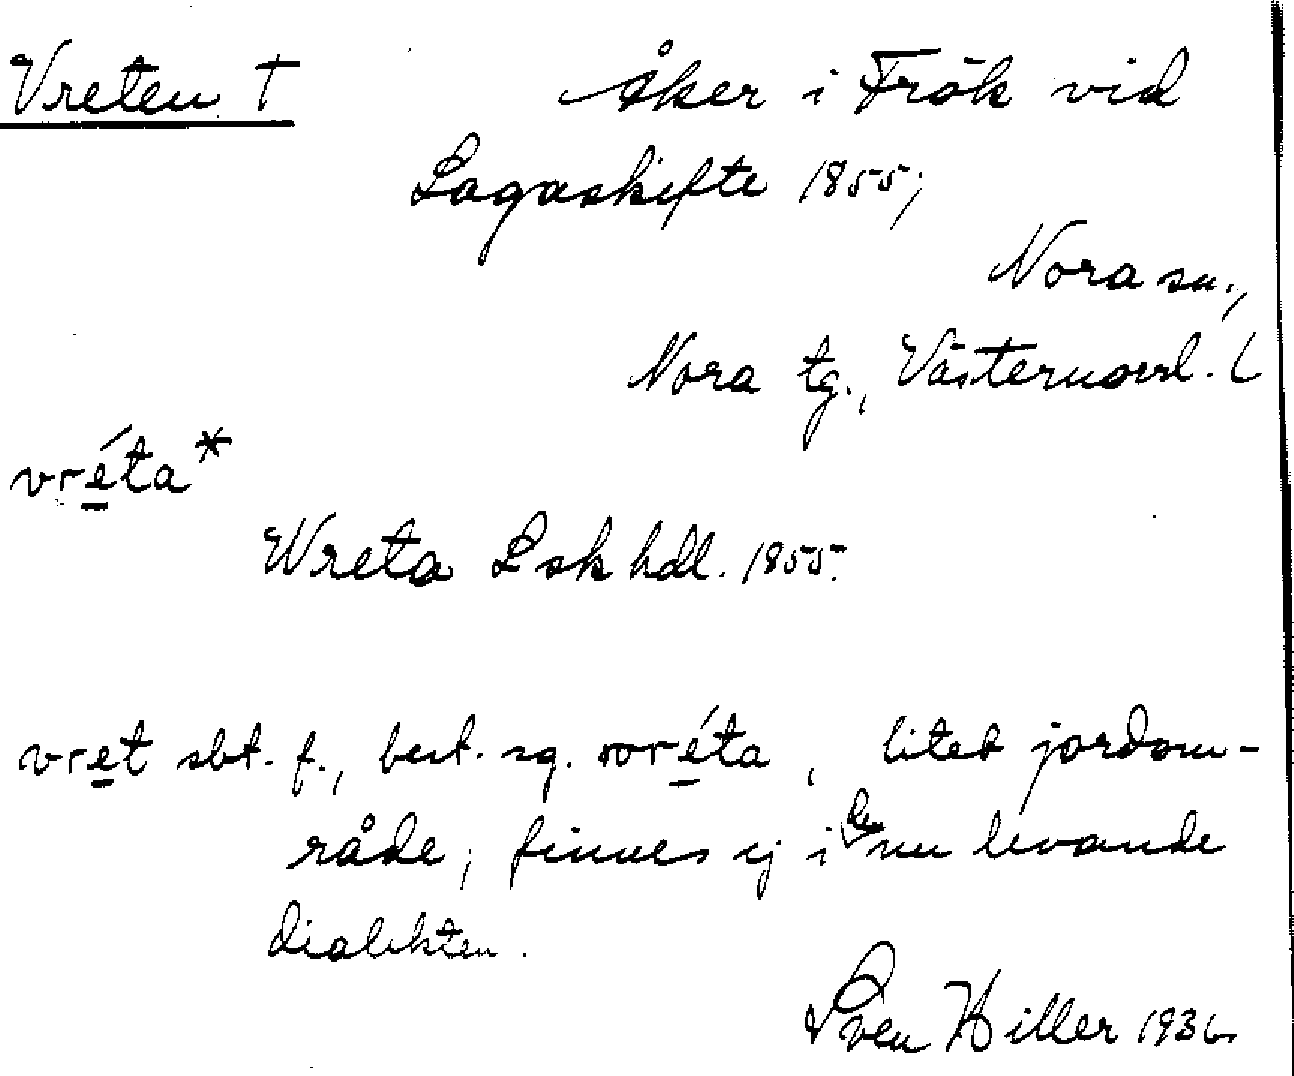 Vreten † Åker i Frök vid
Lagaskifte 1855;
Nora sn.,
Nora tg., Västernorrl. L
vré̱ta*
Wreta Lsk hdl. 1855.
vre̱t sbt. f., best. sg. vré̱ta, litet jordom-
råde; finnes ej i den nu levande
dialekten.
Sven Hiller 1936